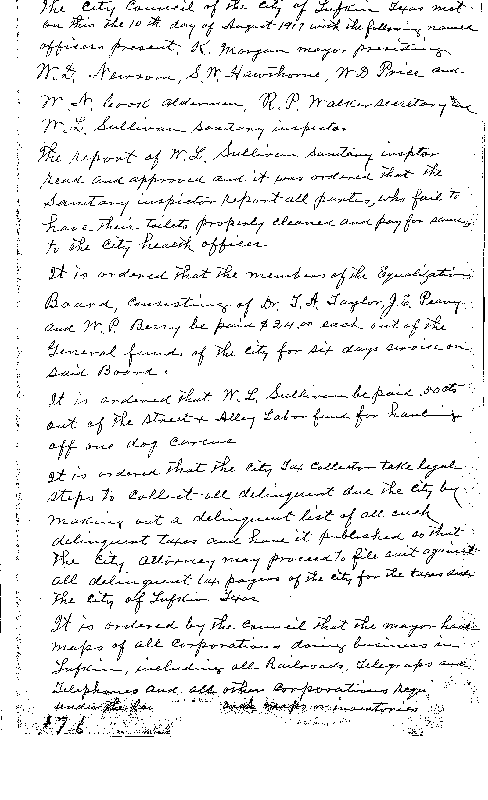 The City Council of the City of Lufkin Texas met
on this the 10th day of August 1917 with the following named
officers present, K. Morgan mayor presiding
W.D. Newsom, S.W. Hawthorne, W D Price and
W N. Cook aldermen, R.P. Walker secretary and
W.L. Sullivan sanitary inspector
The report of W.L. Sullivan sanitary insptor
read and approved and it was ordered that the
Sanitary inspector report all parties, who fail to
have their toilets properly cleaned and pay for same
to the City health officer.
It is ordered that the members of the Equalization
Board, consisting of Dr. T.A. Taylor, J.E. Peavy
and W.P. Berry be paid $24.00 each out of the
General fund, of the City for six days service on
said Board.
It is ordered that W.L. Sullivan be paid 50cts
out of the Street & Alley Labor fund for hauling
off one dog
It is ordered that the City Tax Collector take legal
steps to collect all delinquent due the City by
making out a delinquent list of all such
delinquent taxes and have it published so that
the City Attorney may proceed to file suit against
all delinquent tax payers of the City for the taxes due
the City of Lufkin Texas
It is ordered by the Council that the mayor have
maps of all corporations doing business in
Lufkin, including all Railroads, Telegraps and
Telephones and all other corporations
under the and maps or inventories